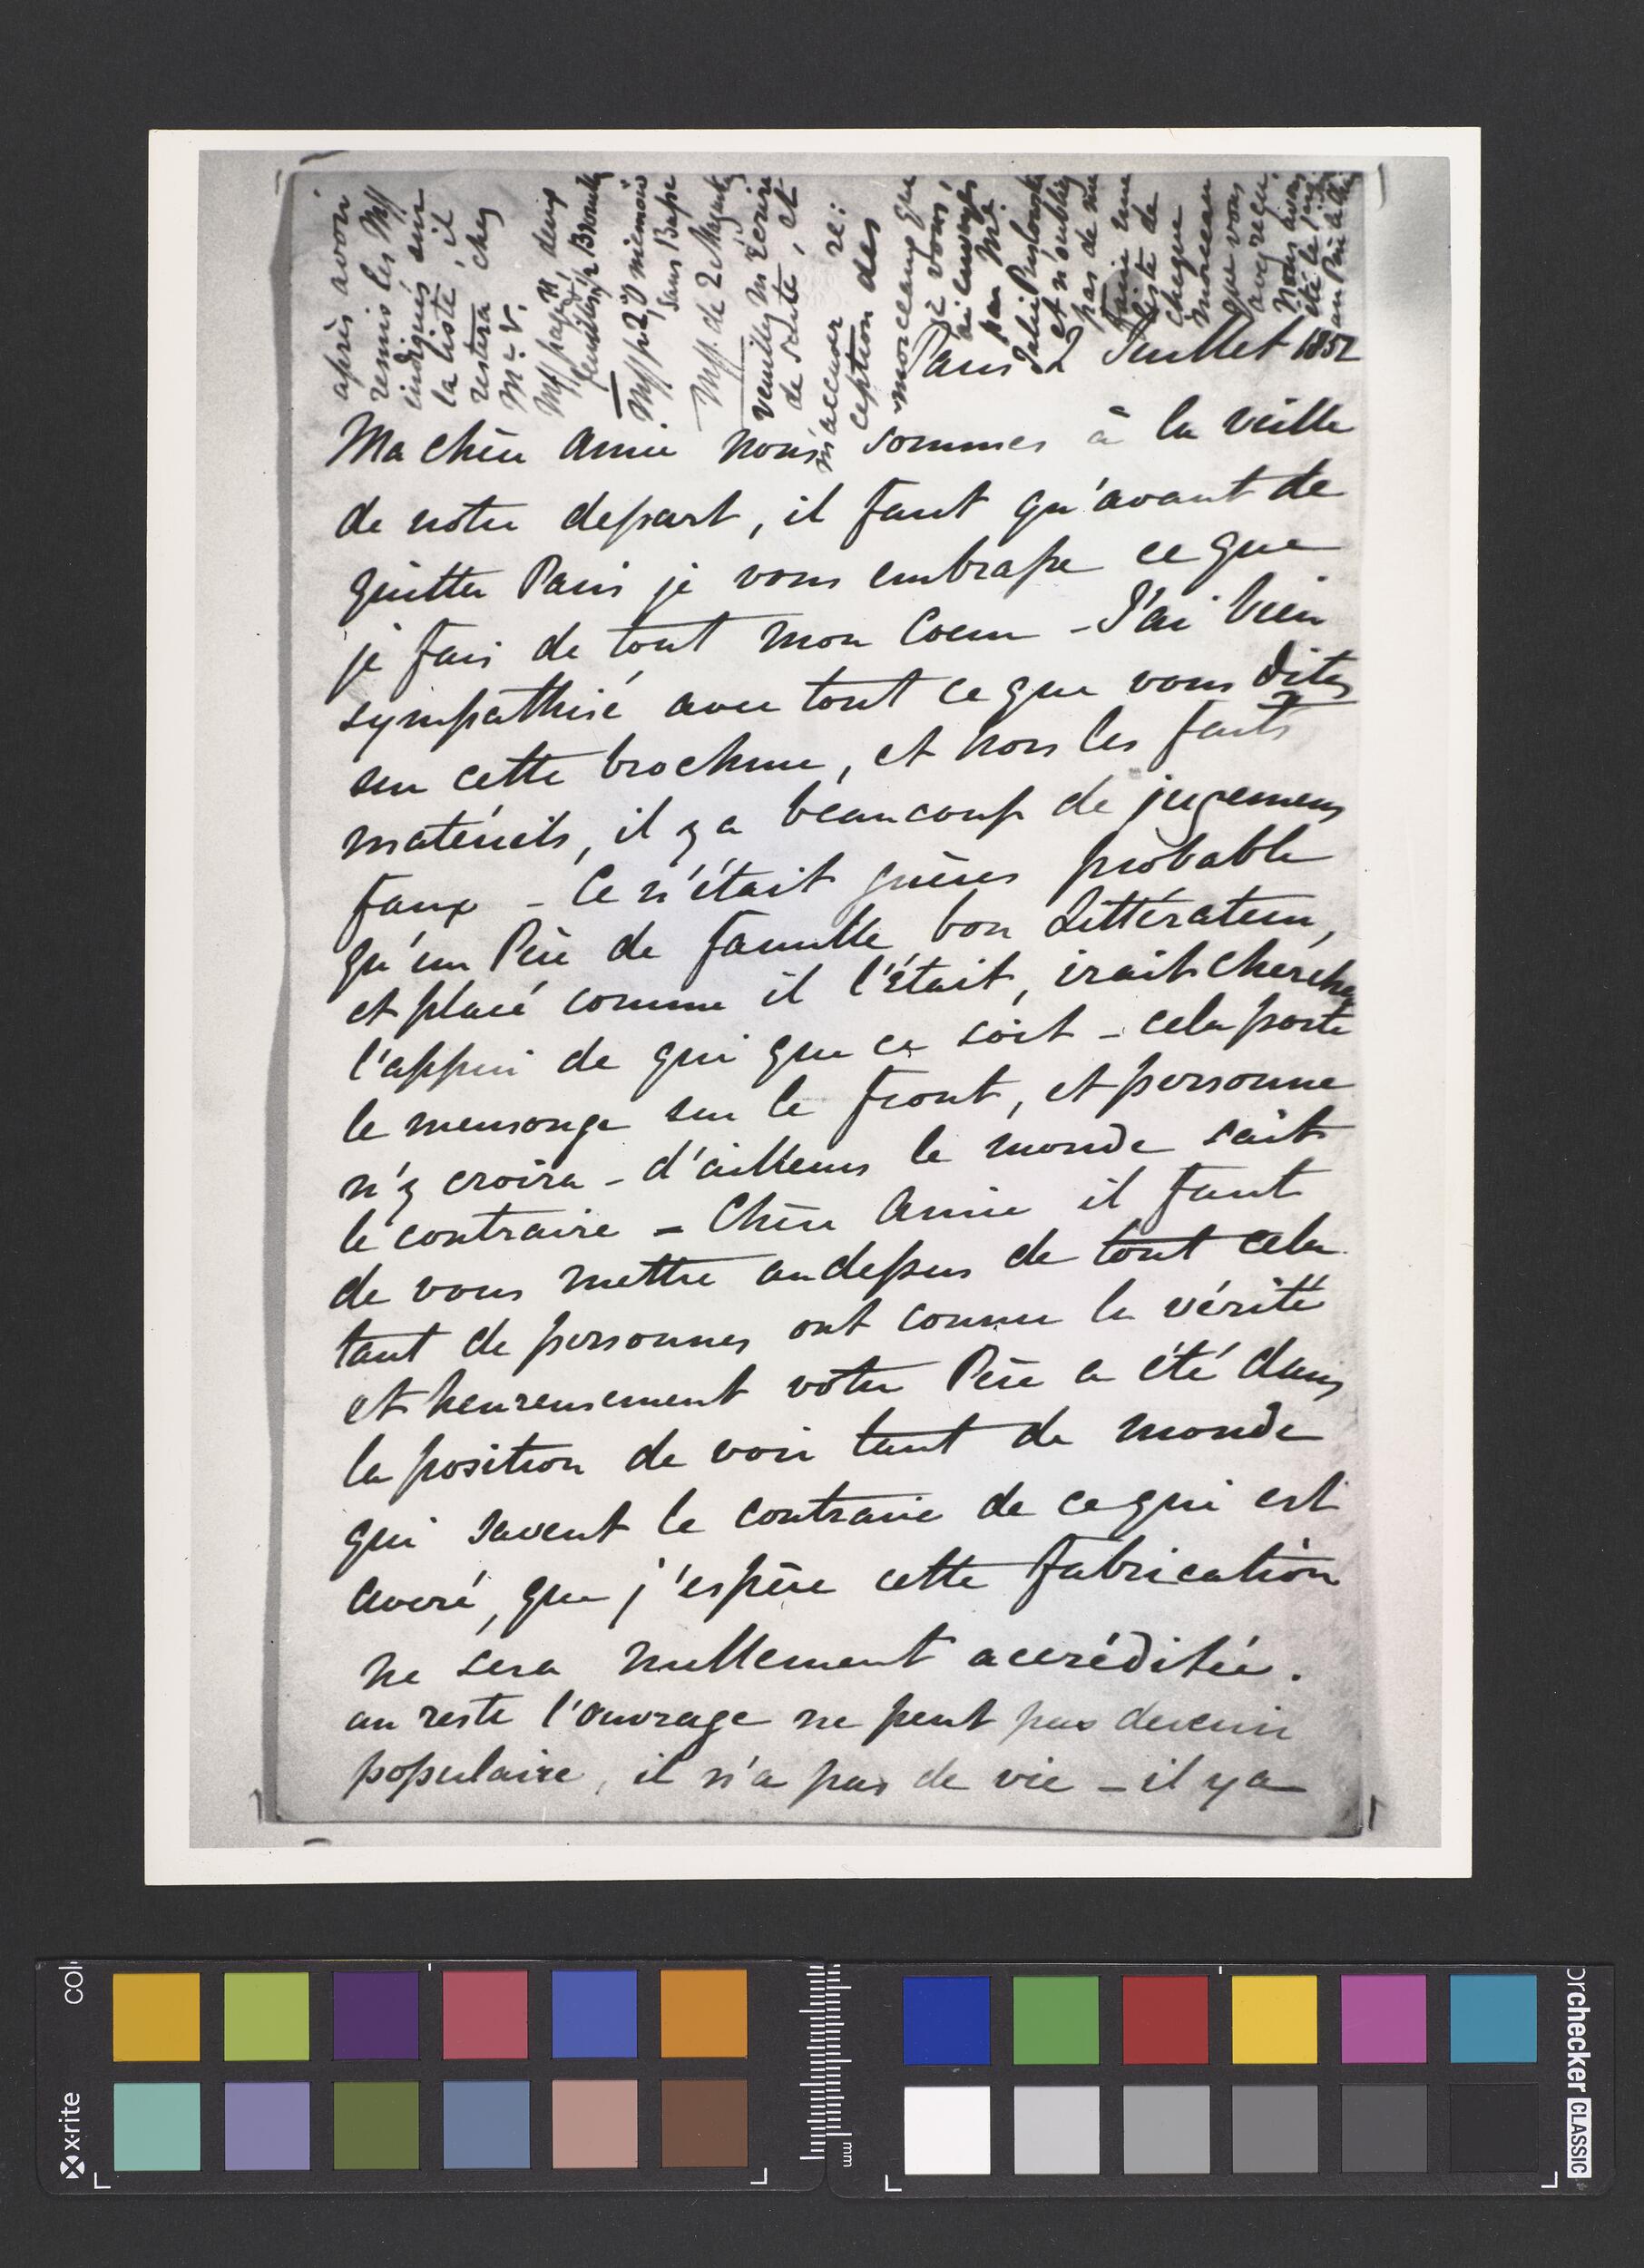 Paris 2 Juillet 1852
Ma chère Amie nous sommes à la veille
de notre depart, il faut qu'avant de
quitter Paris je vous embrasse ce que
je fais de tout mon Coeur - J'ai bien
sympathisé avec tout ce que vous dites
sur cette brochure, et hors les faits
matériels, il y a beaucoup de jugemens
faux - Ce n'était guères probable
qu'un Père de famille, bon Littérateur,
et placé comme il l'était, irait chercher
l'appui de qui que ce soit - cela porte
le mensonge sur le front, et personne
n'y croira - d'ailleurs le monde sait
le contraire - Chère Amie il faut
de vous mettre audessus de tout cela
tant de personnes ont connu la vérité
et heureusement votre Père a été dans
la position de voir tant de monde
qui savent le contraire de ce qui est
averé, que j'espère cette fabrication
ne sera nullement accréditée.
au reste l'ouvrage ne peut pas devenir
populaire, il n'a pas de vie - il y a
après avoir
remis les Mss
indiqués sur
la liste il
restera chez
Mr V.
Mss pap deux
feuilles
Mss pr mémoire
sans
Mss. de 2
veuillez m'écrire
de suite, et
m'accuser ré:
ception des
morceaux que
je vous
ai envoyés
par Me
Julie
et n'oubliez
pas de me
faire une
liste de
chaque
morceau
que vous
avez reçu.
Nous avons
été
au Père
x-rite
colorchecker CLASSIC
mm